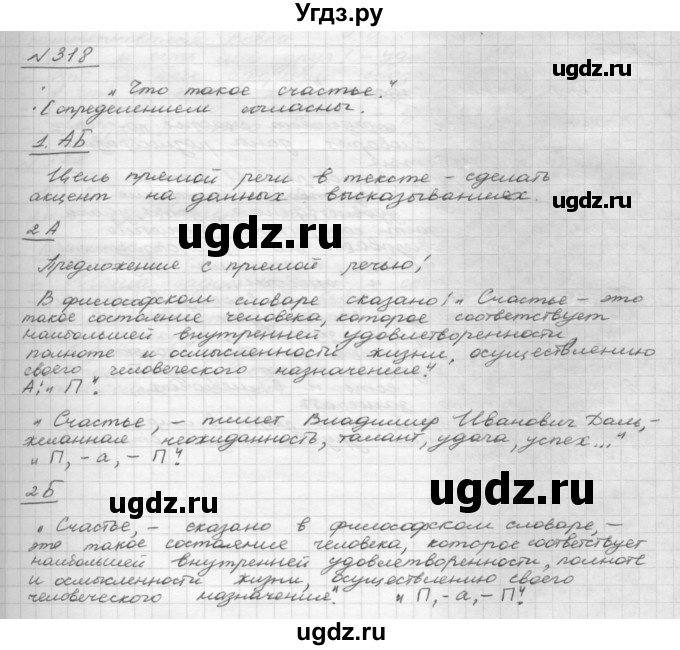 Угдз.ру
№318
· „Что такое счастье."
· С определением согласны.
1. АБ
Цель прямой речи в тексте – сделать
акцент на данных высказываниях.
2А
Предложения с прямой речью:
В философском словаре сказано: „Счастье – это
такое состояние человека, которое соответствует
наибольшей внутренней удовлетворенности,
полноте и осмысленности жизни, осуществлению
своего человеческого назначения."
А: „П".
„Счастье, – пишет Владимир Иванович Даль, –
желанная неожиданность, талант, удача, успех..."
„П, – а, – П".
2Б
„Счастье, – сказано в философском словаре, –
это такое состояние человека, которое соответствует
наибольшей внутренней удовлетворенности, полноте
и осмысленности жизни, осуществлению своего
человеческого назначения". „П, – а, – П".
ugdz.ru
ugdz.ru
ugdz.ru
ugdz.ru
ugdz.ru
ugdz.ru
ugdz.ru
ugdz.ru